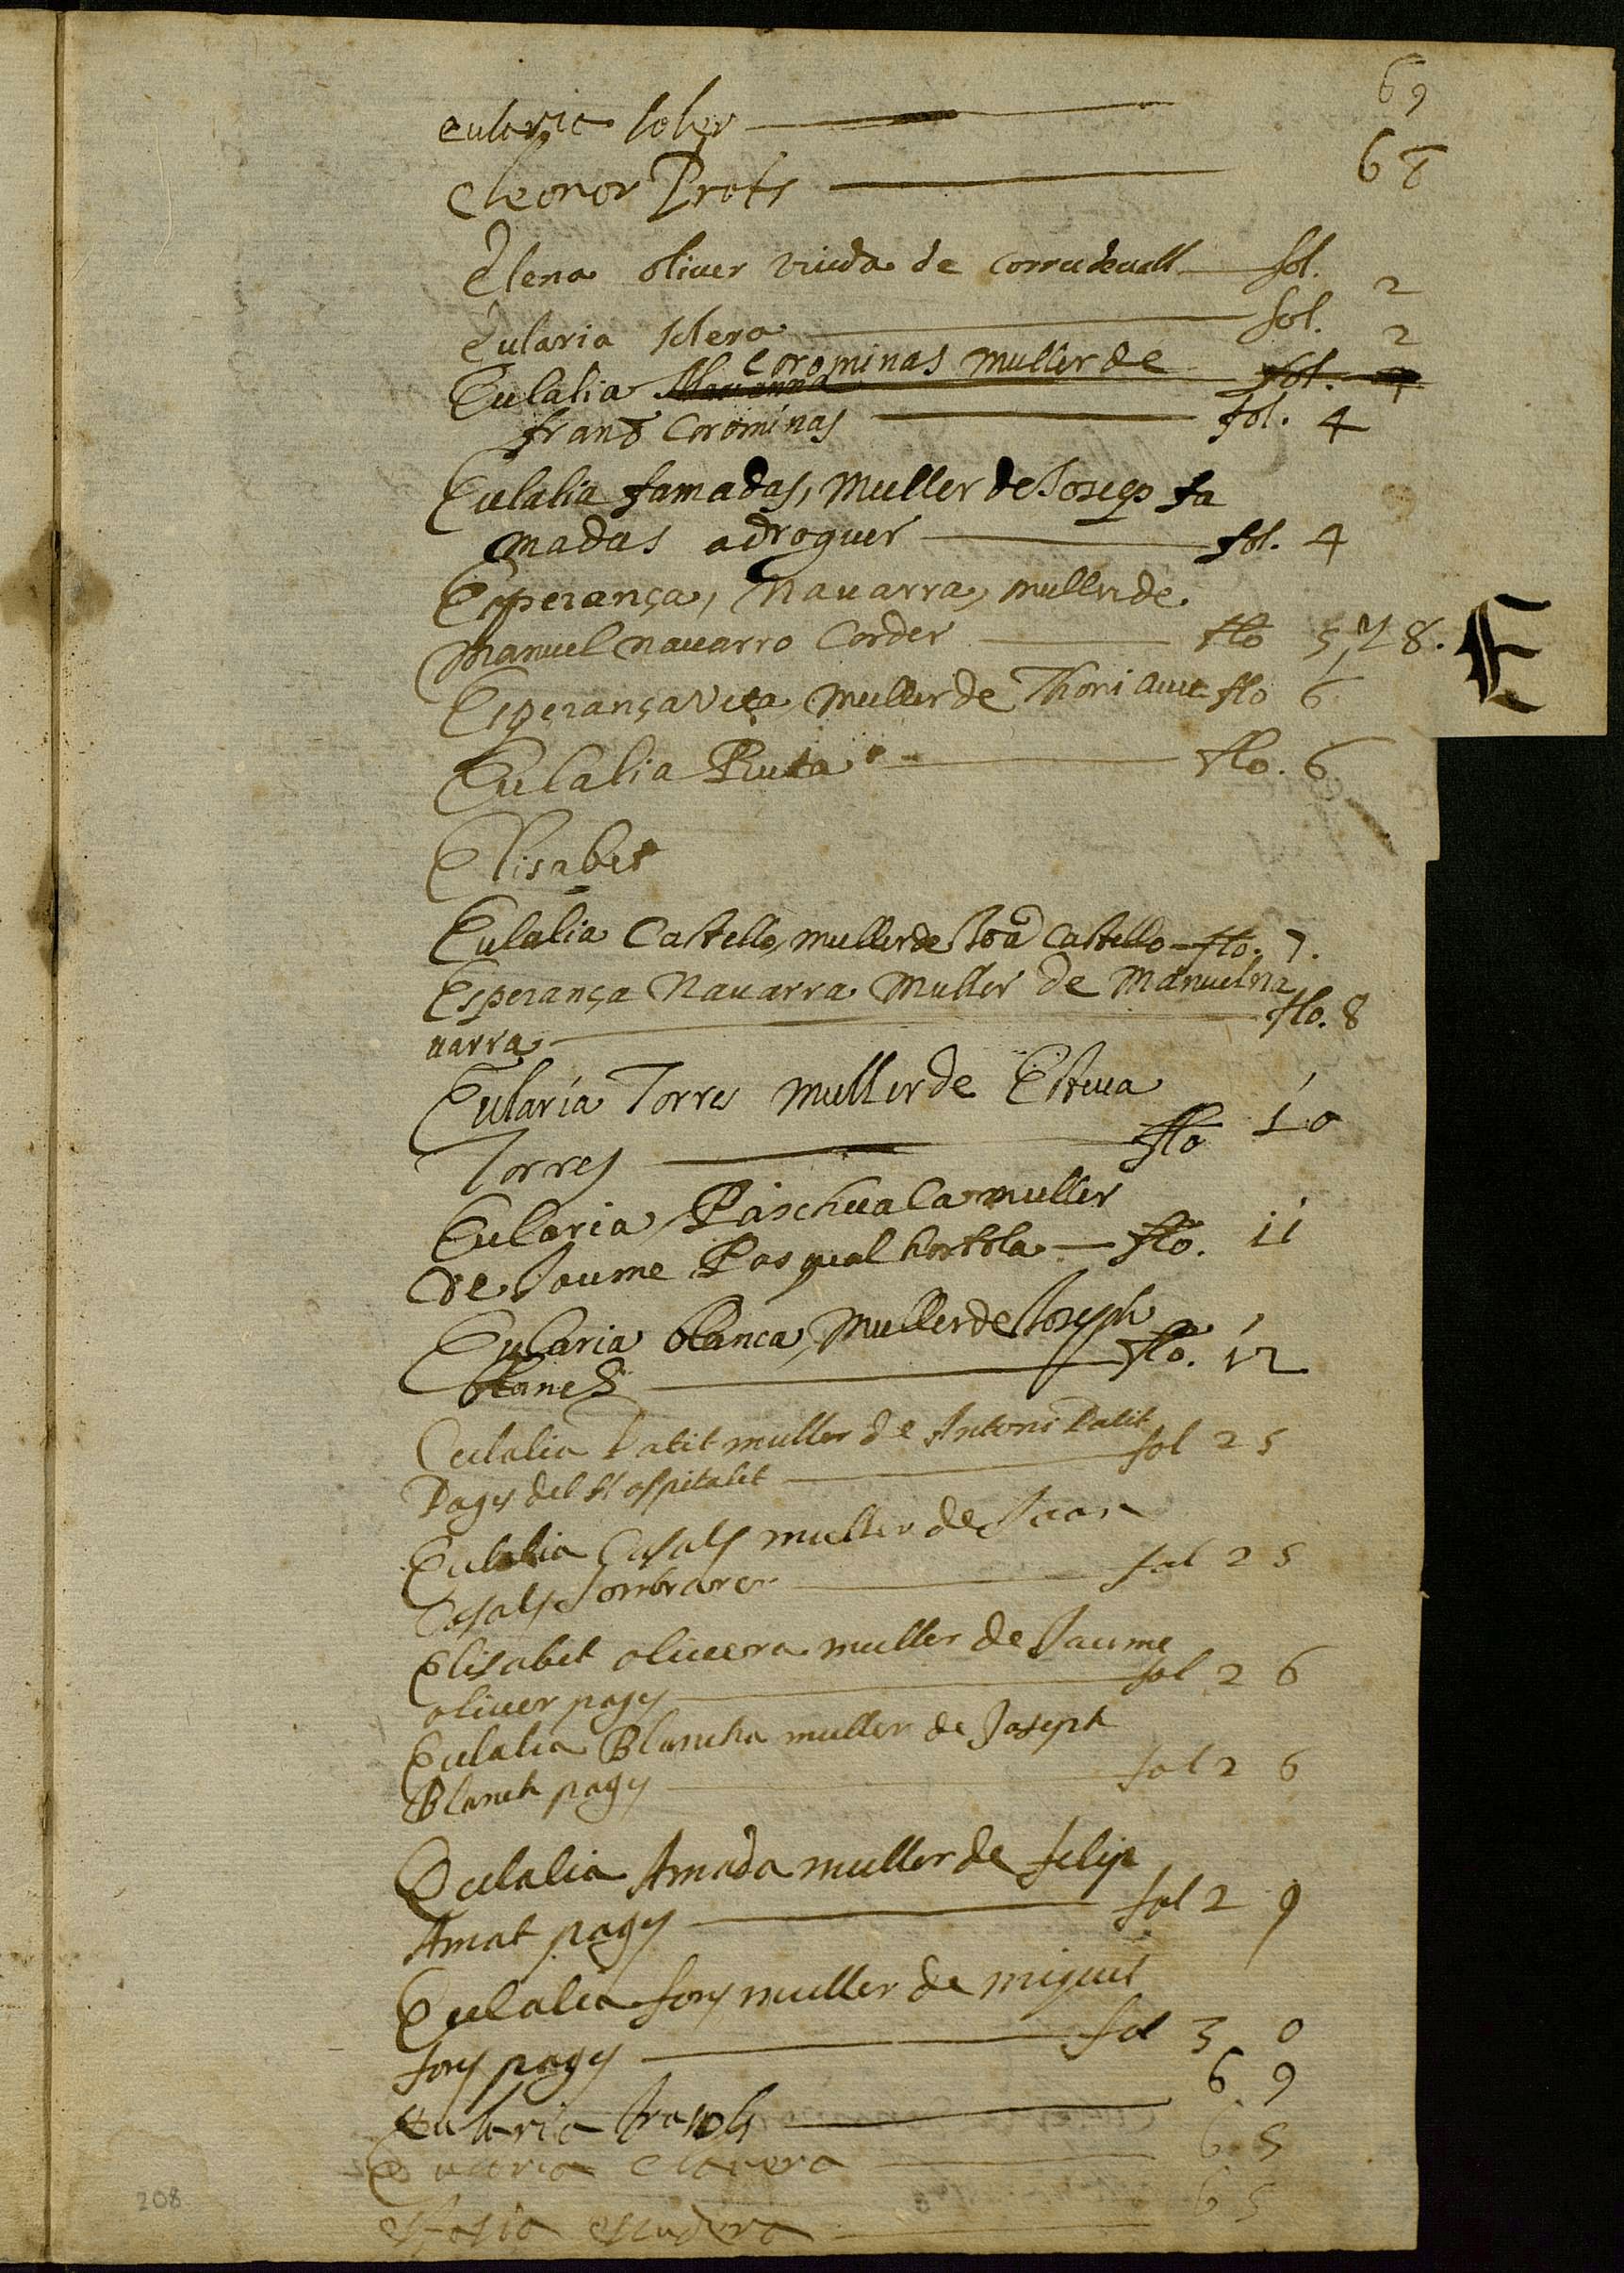 eularia soler 69
Eleonor Prats 68
Elena oliuer viuda de corrudeuall fol. 2
Eularia fol. 2
Corominas muller de
Eulalia Marianna fol. 4
Corominas fol. 4
Eulalia famadas, muller de Josep fa
madas adroguer fol. 4
Esperança, Nauarra, muller de
Manuel nauarro Corder flo 5, y 8.
E
Esperança muller de Thoni flo 6
Eulalia Ruta flo. 6
Elisabet
Eulalia Castello, muller de Joā Castello flo. 7.
Esperança Nauarra muller de Manuel na
uarra flo. 8
Eularia Torres muller de Esteua
Torres flo 10
Eularia Paschuala muller
de Jaume Pasqual hortola flo. 11
Eularia blanca, Muller de Joseph
blanch flo. 12
Eulalia Patit muller de Antoni Patit
Pages del Hospitalet fol 25
Eulalia Casals muller de Joan
Casals sombrarer fol 25
Elisabet oliuera muller de Jaume
oliuer pages fol 26
Eulalia Blancha muller de Joseph
Blanch pages fol 26
Eulalia Amada muller de felip
Amat pages fol 29
Eulalia fons muller de miquel
fons pages fol 30
Eularia 69
Eularia 65
escudera 65
208